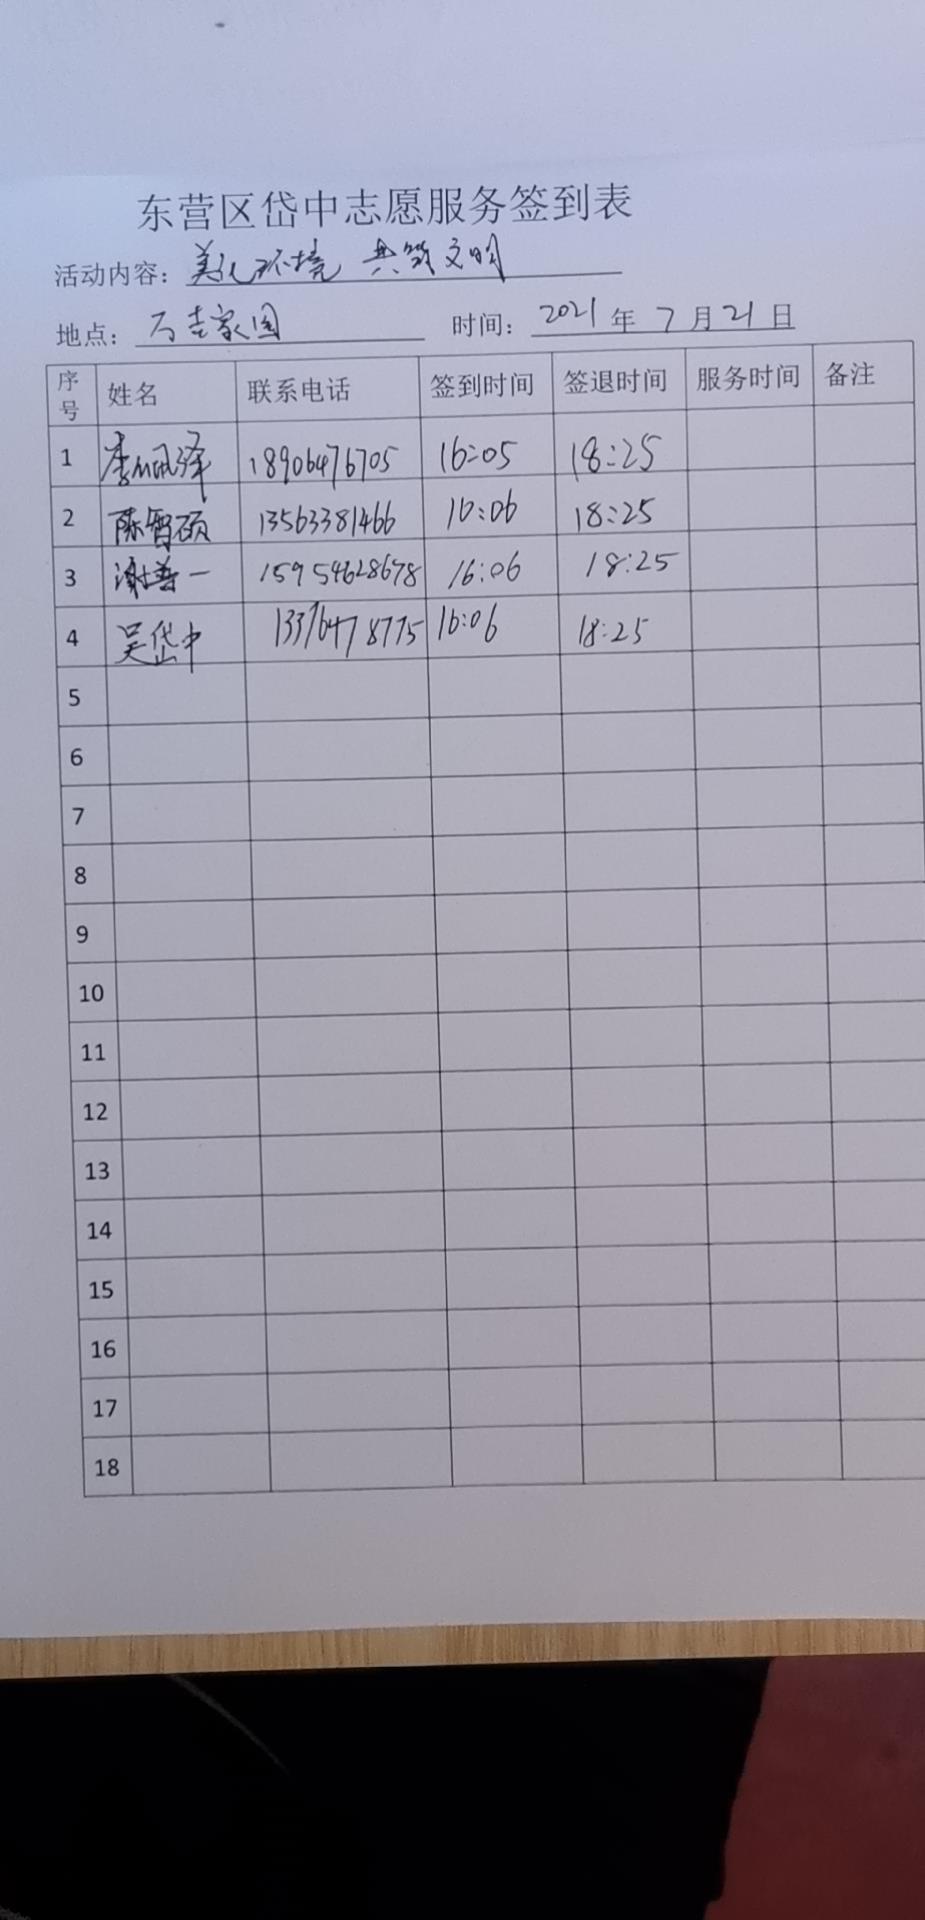 东营区岱中志愿服务签到表
活动内容：美化环境 共筑文明
地点：万吉家园 时间：2021年7月21日
序号 姓名 联系电话 签到时间 签退时间 服务时间 备注
1 李佩泽 18906476705 16:05 18:25
2 陈智硕 13563381466 16:06 18:25
3 谢善一 15954628678 16:06 18:25
4 吴岱中 13376478775 16:06 18:25
5
6
7
8
9
10
11
12
13
14
15
16
17
18